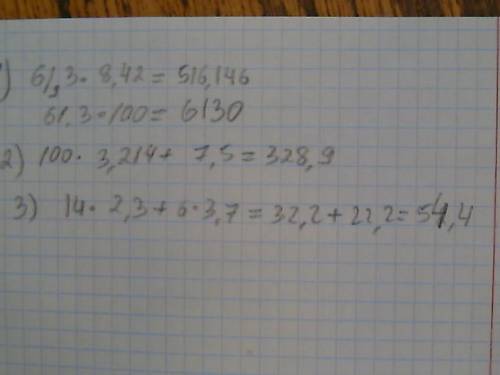 1) 61,3 · 8,42 = 516,146
61,3 · 100 = 6130
2) 100 · 3,214 + 7,5 = 328,9
3) 14 · 2,3 + 6 · 3,7 = 32,2 + 22,2 = 54,4